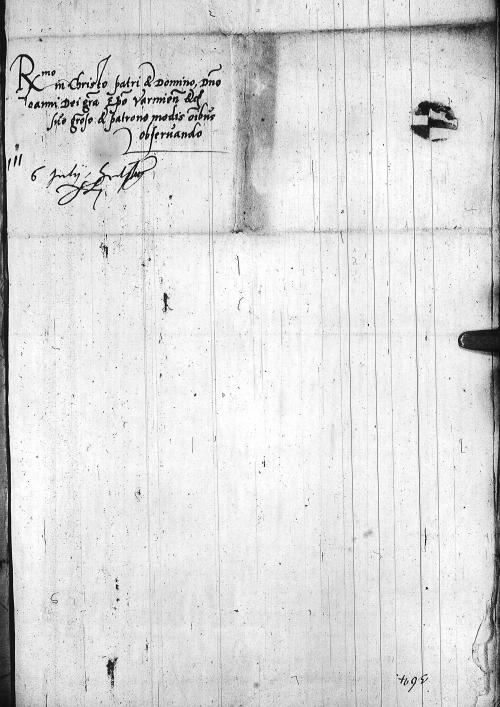 Rmo in Christo patri & Domino, Dno
Ioanni Dei gra Epo Varmien &c
suo groso & patrono modis oibus
observando
6 July